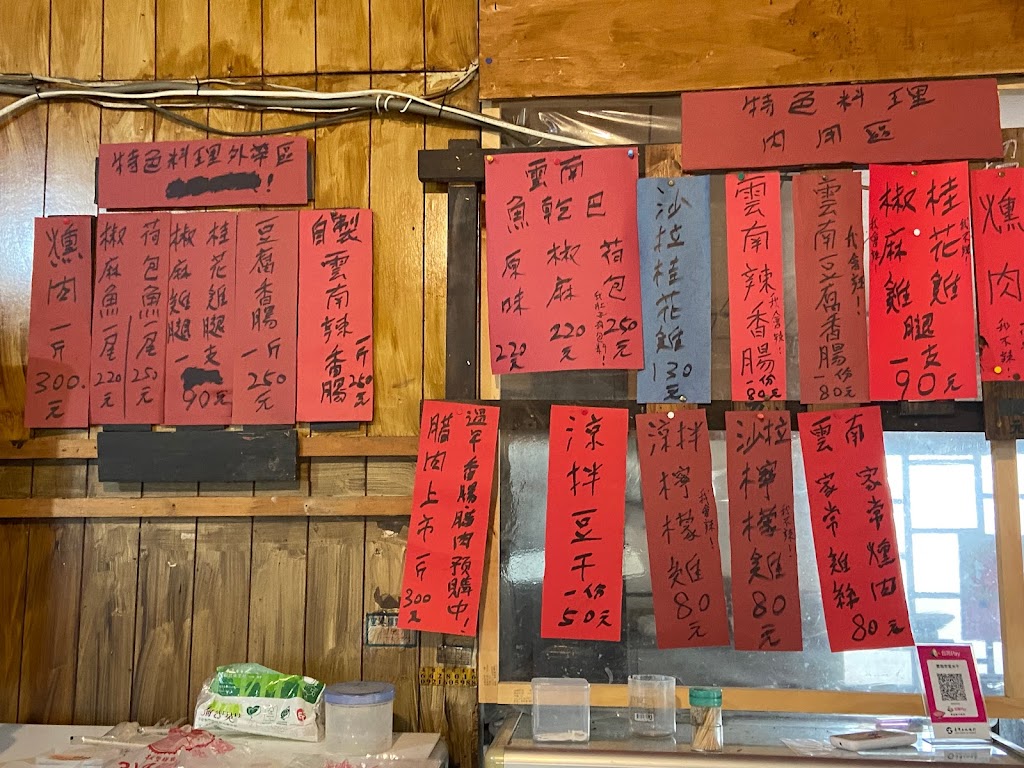 特色料理外帶區
!
燻肉一斤300.元
椒麻魚一尾220元
荷包魚一尾250元
椒麻雞腿
桂花雞腿
一支90元
豆腐香腸一斤250元
自製雲南辣香腸
一斤250元
特色料理
內用區
雲南
魚乾巴
原味220元
椒麻220元
荷包250元
沙拉桂花雞130元
雲南辣香腸
一份80元
雲南豆腐香腸
我會辣!
一份80元
椒麻雞腿
桂花雞腿
一支90元
燻肉
我不辣!
過年香腸臘肉預購中!
臘肉上市一斤300元
涼拌豆干
一份50元
涼拌檸檬雞80元
我會辣!
沙拉檸檬雞80元
我不辣!
雲南
家常燻肉
家常雞絲
80元